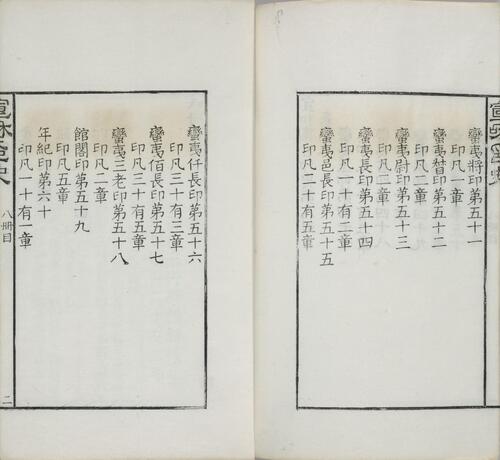 蠻夷將印第五十一
印凡一章
蠻夷朁印第五十二
印凡二章
蠻夷尉印第五十三
印凡二章
蠻夷長印第五十四
印凡一十有二章
蠻夷邑長印第五十五
印凡二十有五章
蠻夷仟長印第五十六
印凡三十有三章
蠻夷佰長印第五十七
印凡三十有五章
蠻夷三老印第五十八
印凡二章
館閣印第五十九
印凡五章
年紀印第六十
印凡一十有一章
八冊目
二